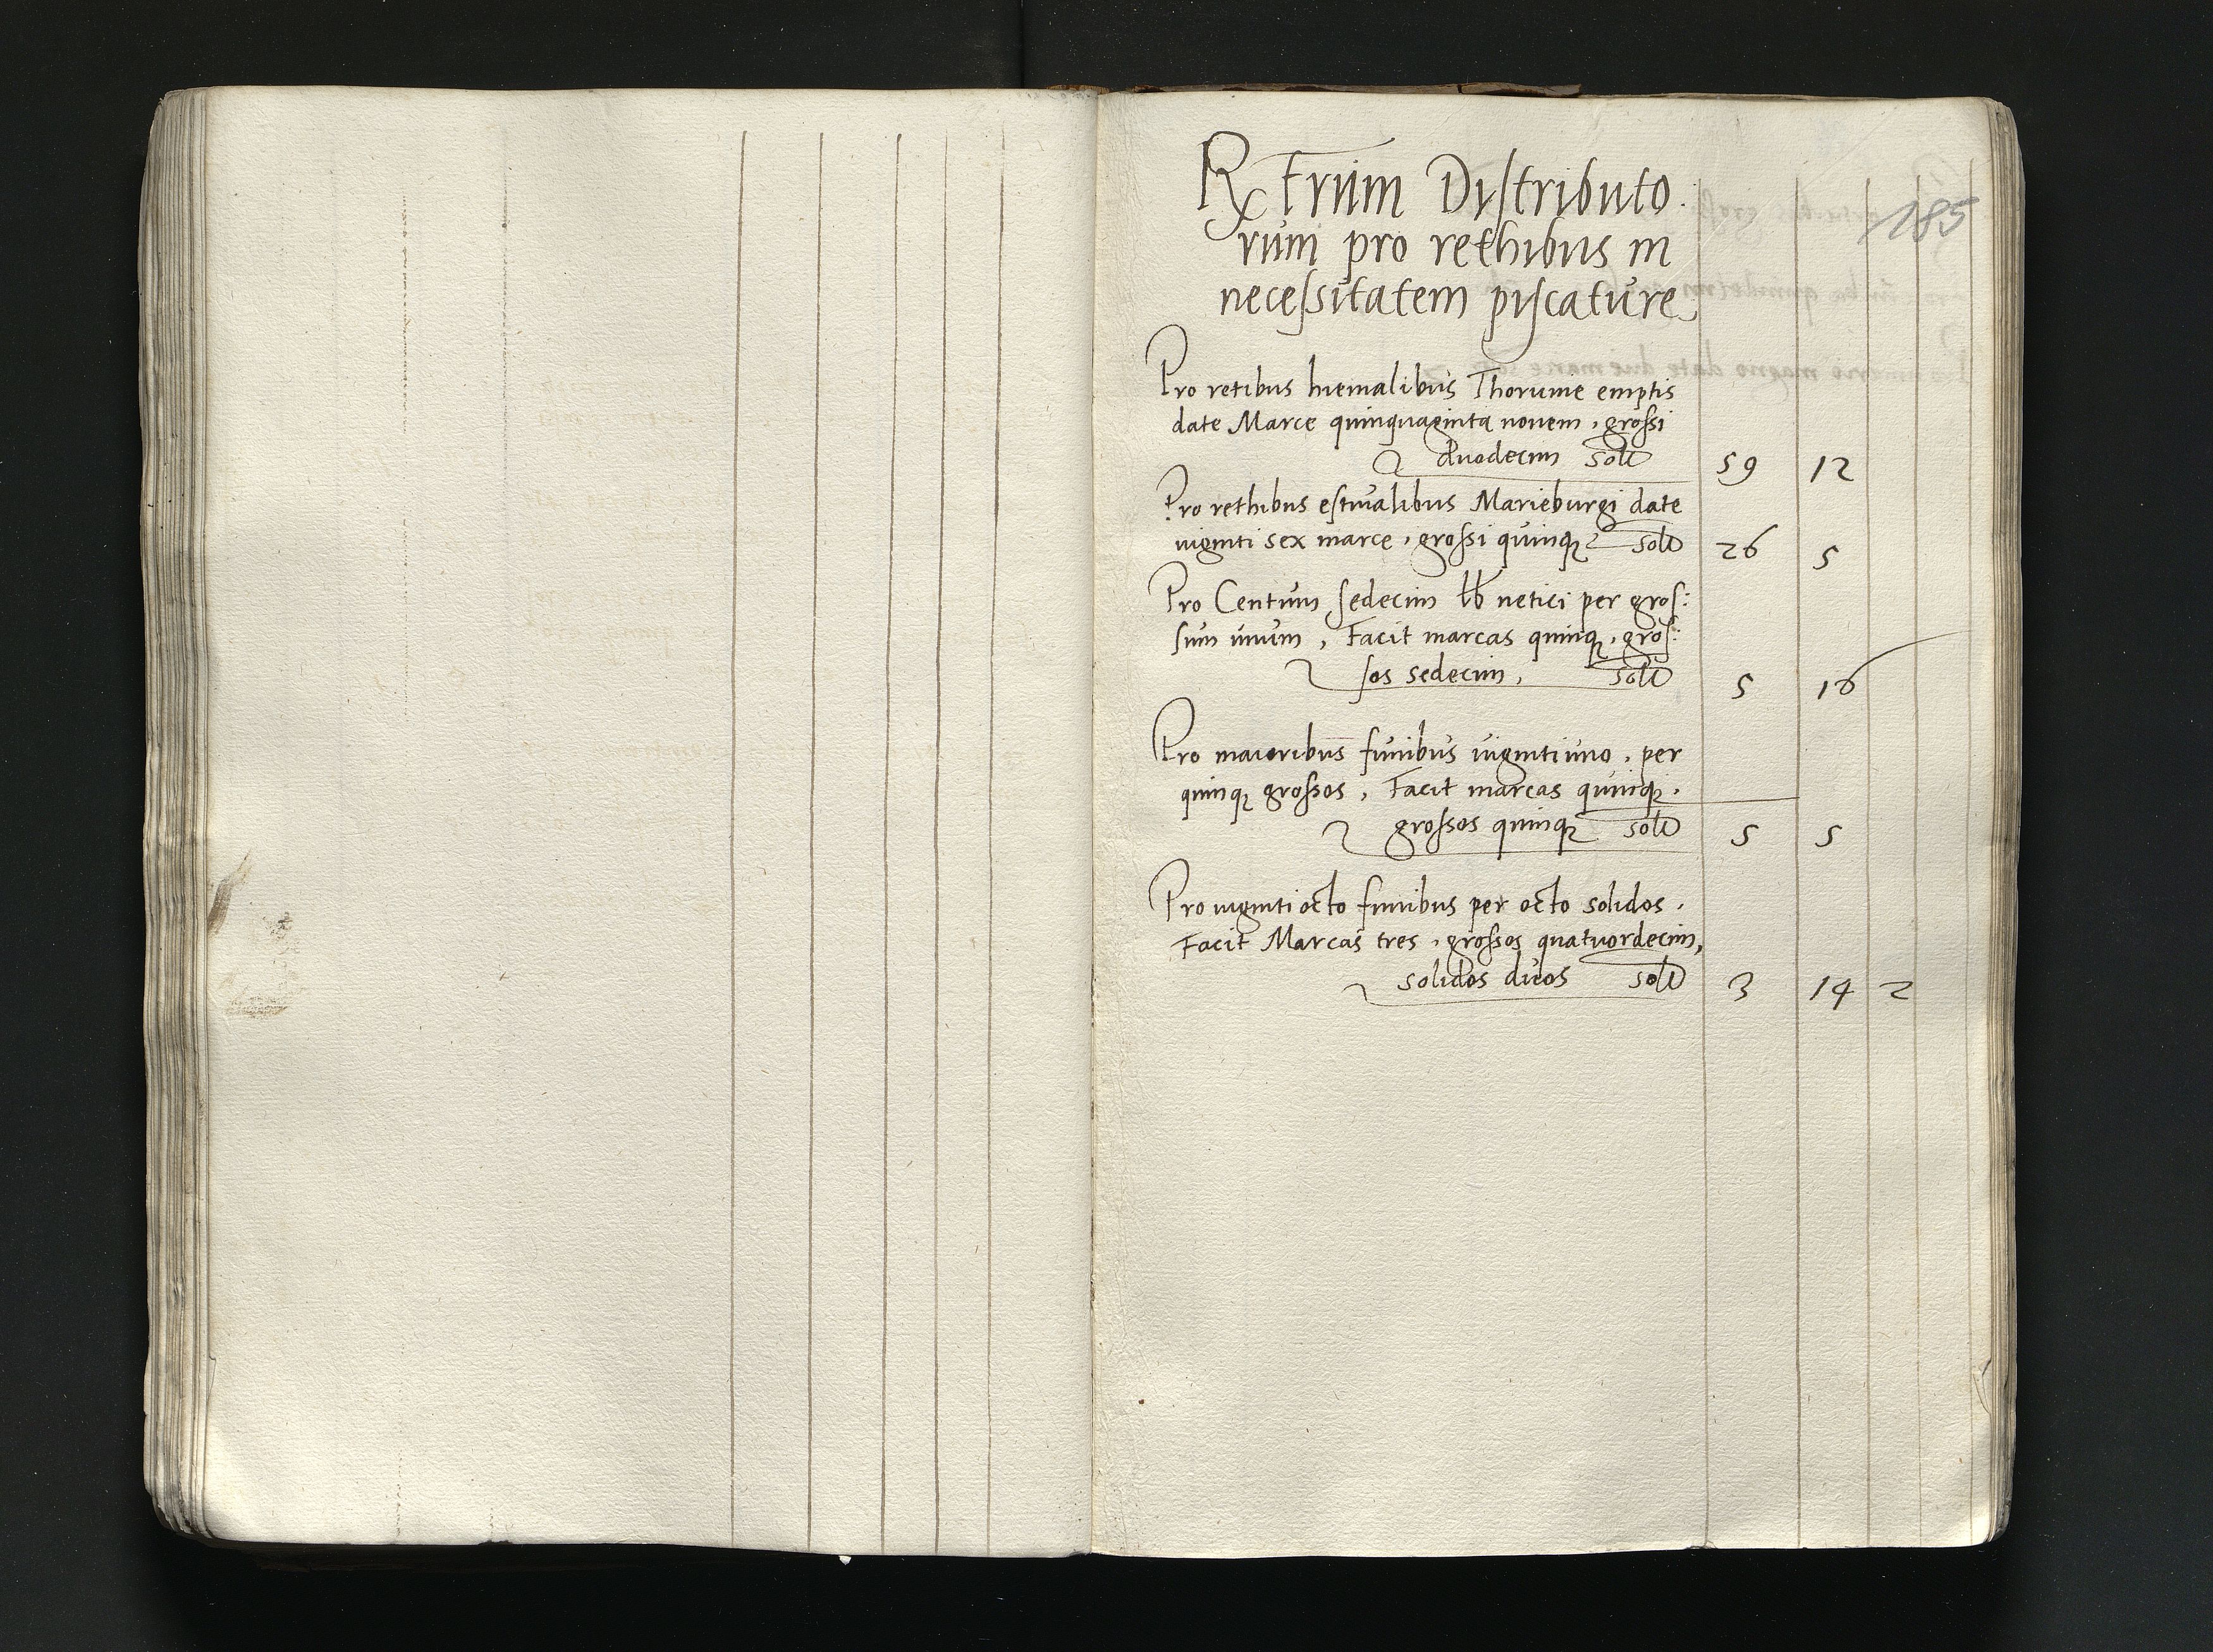 185
RXtrum Distributo
rum pro rethibus in
necessitatem piscature
Pro retibus hiemalibus Thorunie emptis
date Marce quinquaginta novem, grossi
duodecim solt 59 12
Pro rethibus estivalibus Marieburgi date
viginti sex marce, grossi quinqꝫ solt 26 5
Pro Centum sedecim lb netici per gros:
sum unum, Facit marcas quinqꝫ, gros:
sos sedecim, solt 5 16
Pro maioribus funibus vigintiuno, per
quinqꝫ grossos, Facit marcas quinqꝫ,
grossos quinqꝫ solt 5 5
Pro vigintiocto funibus per octo solidos,
Facit Marcas tres, grossos quatuordecim,
solidos duos solt 3 14 2